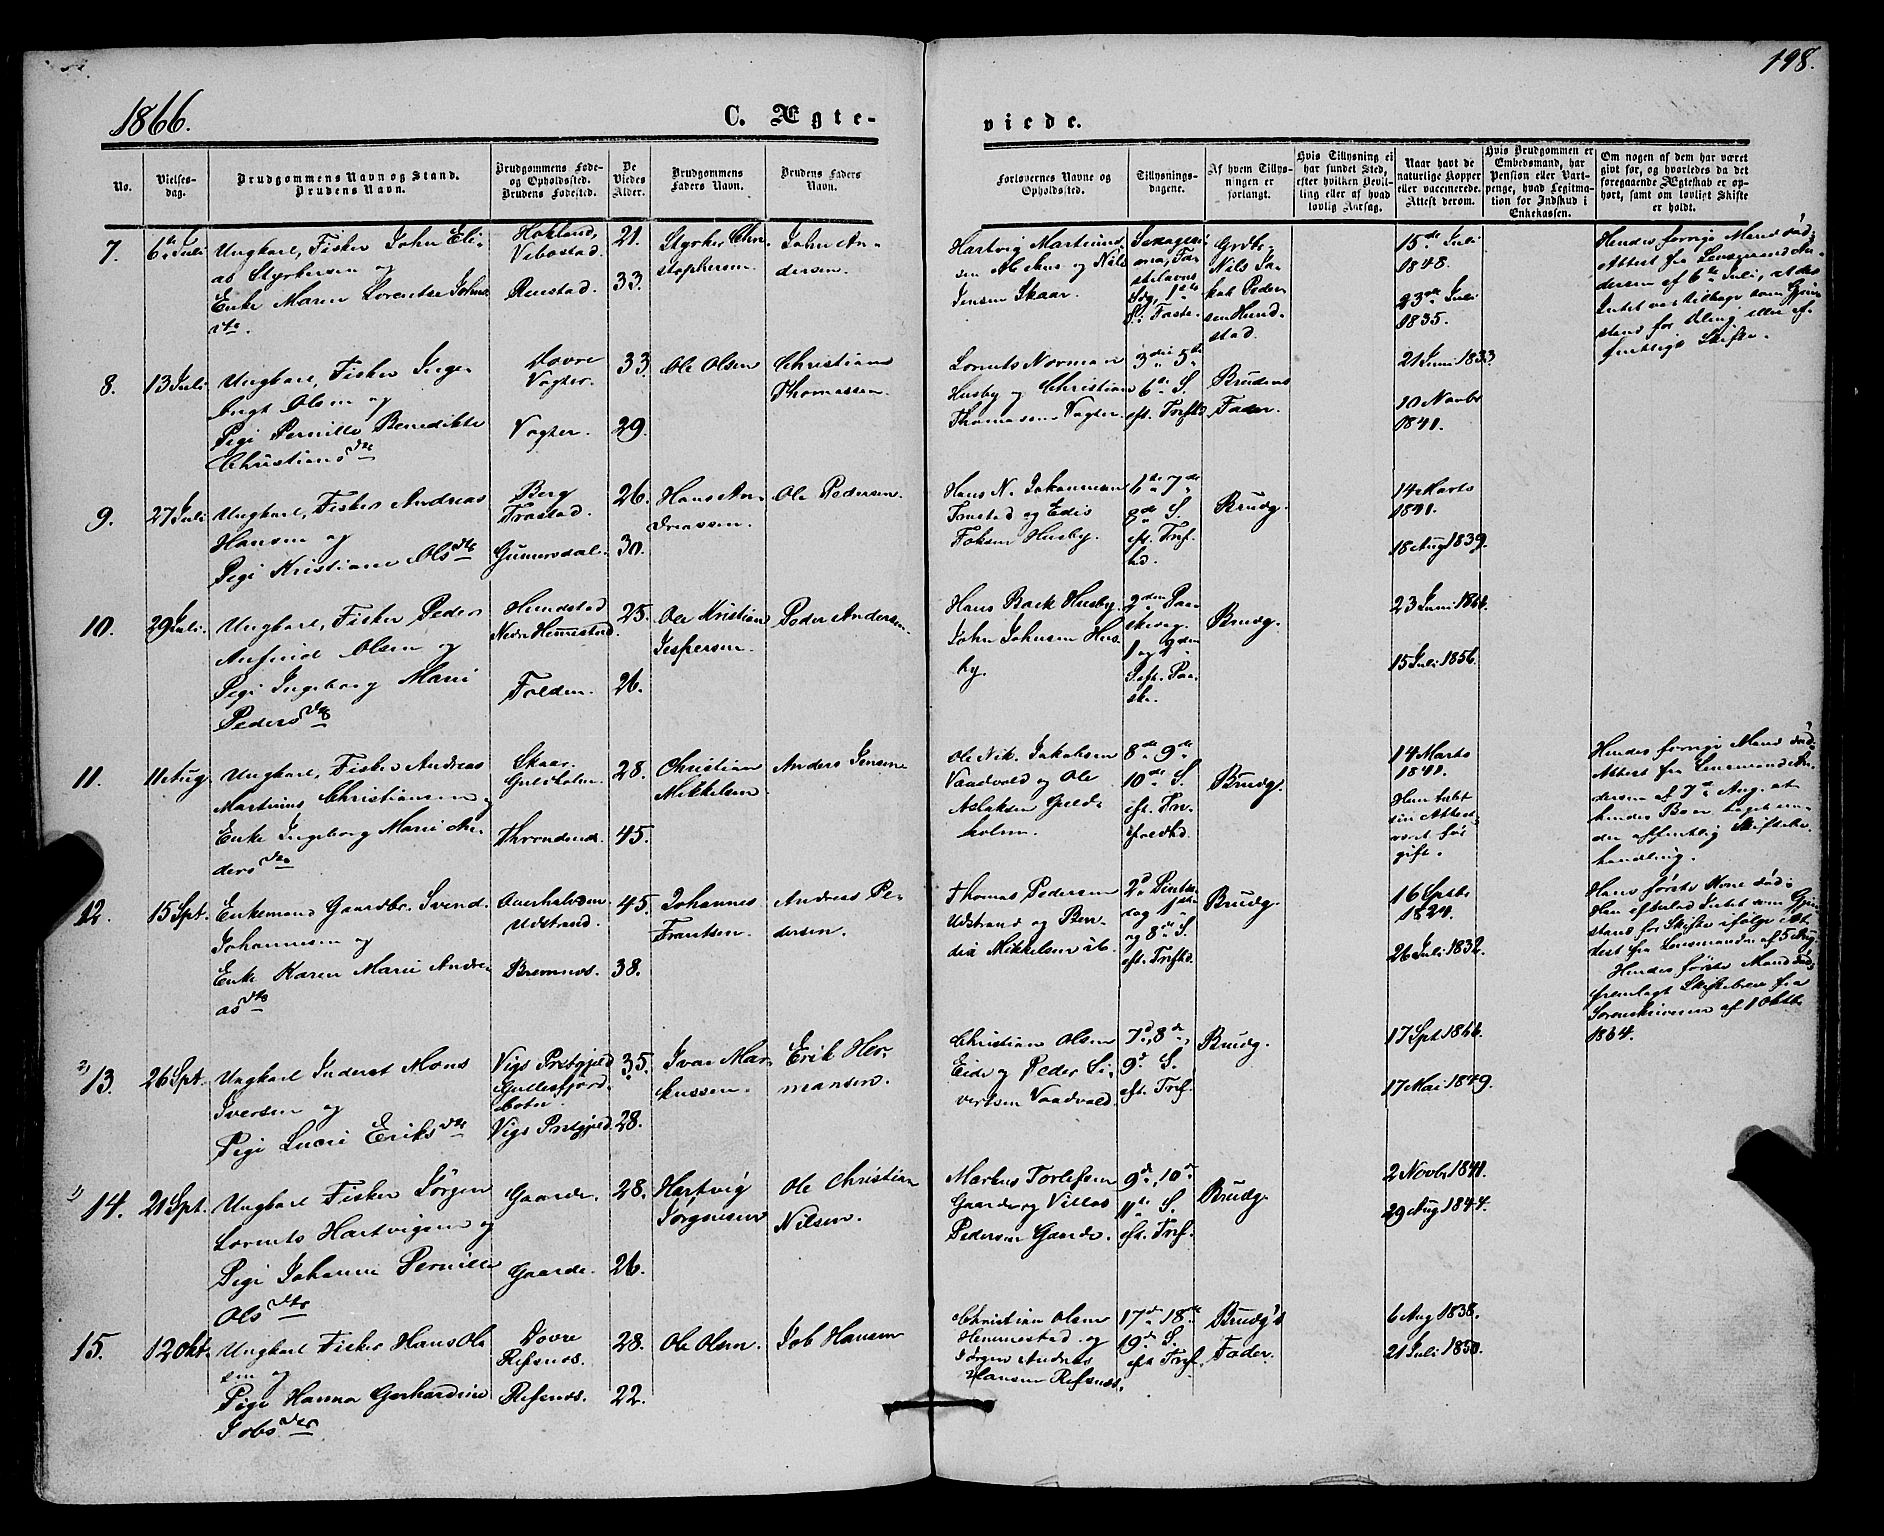 198.
1866.
C. Ægte-
viede.
No.
Vielses-
dag.
Brudgommens Navn og Stand.
Brudens Navn.
Brudgommens Føde-
og Opholdssted.
Brudens Fødested.
De
Viedes
Alder.
Brudgommens
Faders Navn.
Brudens Faders
Navn.
Forlovernes Navne og
Opholdssted.
Tillysnings-
dagene.
Af hvem Tillys-
ningen er
forlangt.
Hvis Tillysning ei
har fundet Sted,
efter hvilken Bevil-
ling eller af hvad
lovlig Aarsag.
Naar havt de
naturlige Kopper
eller vaccinerede.
Attest derom.
Hvis Brudgommen er
Embedsmand, har
Pension eller Vart-
penge, hvad Legitma-
tion for Indskud i
Enkekassen.
Om nogen af dem har været
givt før, og hvorledes da det
foregaaende Ægteskab er op-
hørt, samt om lovligt Skifte
er holdt.
7.
6te Juli
Ungkarl, Fisker John Eli-
as Styrkersen og
Enke Maren Lorentse Johns
dtr.
Hokland,
Vebostad.
Renstad.
21.
33.
Styrker Chri
stophersen.
John An-
dersen.
Hartvig Martinus
sen og Nils
Jensen Skaar.
Sexagesi
ma, Fa-
stelavns
Sdg, 1ste
S. i Faste.
Grdbr.
Nils Ja-
kob Peder
sen Hund-
stad.
15de Juli
1848.
23de Juli
1835.
Hendes forrige Mand død;
Attest fra Lensmand An-
dersen af 6te Juli, at der
Intet var tilbage som Gjen-
stand for Deling eller of-
fentligt Skifte.
8.
13 Juli
Ungkarl, Fisker Inge-
brigt Olsen og
Pige Pernille Benedikte
Christiansdtr
Dovre
Vagter.
Vagter.
33.
29.
Ole Olsen
Christian
Thomassen.
Lorents Norman
Husby og Christian
Thomassen Vagter.
3die 5te
6te S.
eft. Trefhd
Brudens
Fader.
21 Juni 1833
10 Novbr
1841.
9.
27 Juli
Ungkarl, Fisker Andreas
Hansen og
Pige Kristiane Olsdtr
Berg
Trostad.
Gunnersdal.
26.
30.
Hans An-
dreassen.
Ole Pedersen.
Hans N. Johannesen
og Edis
Foksen Husby.
6te 7de
8de S.
eft. Tref
hd.
Brudg.
14 Marts
1841.
18 Aug 1839.
10.
29 Juli.
Ungkarl, Fisker Peder
Anfind Olsen og
Pige Ingeborg Marie
Pedersdtr
Hundstad
Nedre Hemestad.
Folden.
25.
26.
Ole Kristian
Jespersen.
Peder Andersen.
Hans Baek Husby.
John Johnsen Hus-
by.
2den Paa-
skedag.
1 og 2den
S. eft. Paa-
ske.
Brudg.
23 Juni 1866.
15 Juli 1856.
11.
11 Aug.
Ungkarl, Fisker Andreas
Martinus Christiansen og
Enke Ingeborg Marie An-
dersdtr
Skaar.
Gulholm.
Throndenæs.
28.
45.
Christian
Mikkelsen.
Anders Jensen
Ole Nik. Jakobsen
Vaadvold og Ole
Aslaksen Guld-
holm.
8de 9de
10de S.
eft. Tre-
foldhd.
Brudg.
14 Marts
1841.
Hun tabt
sin Attest
været før
gift.
Hendes forrige Mand død;
Attest fra Lensmand An-
dersen af 7de Aug. at
hendes Boer taget un-
der offentlig Skiftebe-
handling.
12.
15 Spt.
Enkemand Gaardbr. Svend
Johannesen og
Enke Karen Marie Andre-
asdtr
Overhalden
Udstrand.
Bremnes.
45.
38.
Johannes
Frantsen.
Andreas Pe-
dersen.
Thomas Pedersen
Udstrand og Ben-
dix Mikkelsen ib.
2d Pintse
dag 1ste
og 8de S.
eft. Trefhd.
Brudg.
16 Septbr
1824.
26 Juli 1832.
Hans første Kone død;
Han efterlod Intet som Gjen
stand for Skifte ifølge At-
test fra Lensmanden af 5 Aug
Hendes første Mand død;
fremlagt Skiftebrev fra
Sorenskriveren af 1 Oktbr
1864.
13.
26 Spt.
Ungkarl Inderst Mons
Iversen og
Pige Lucie Eriksdtr
Vigs Prstgjeld
Gullesfjord-
botn.
Vigs Prstgjeld.
35.
28.
Ivar Mar-
kussen.
Erik Her-
mansen.
Christian Olsen
Eide og Peder Si-
vertsen Vaadvold.
7d, 8de,
9d S.
eft. Tref.
Brudg.
17 Spt 1866.
17 Mai 1849.
14.
21 Spt.
Ungkarl Fisker Jørgen
Lorents Hartvigsen og
Pige Johanne Pernille
Olsdtr
Gaarde.
Gaarde.
28.
26.
Hartvig
Jørgensen
Ole Christian
Nilsen.
Markus Torlefsen
Gaarde og Villas
Pedersen Gaarde.
9de, 10de
11te S.
eft. Tref.
Brudg.
2 Novbr 1841.
29 Aug 1844.
15.
12 Okt.
Ungkarl Fisker Hans Ol-
sen og
Pige Hanna Gerhardine
Jobsdtr
Dovre
Refsnes.
Refsnes.
28.
22.
Ole Olsen.
Job Hansen
Christian Olsen
Hemmestad og
Jørgen Andreas
Hansen Refsnes.
17de 18de
19de S.
eft. Tref.
Brudg's
Fader.
6 Aug 1838.
21 Juli 1850.